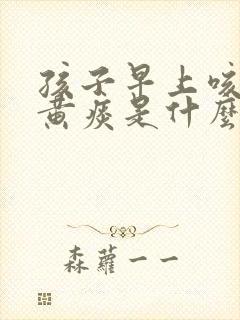 孩子早上咳
黄痰是什麼
森蘿一一